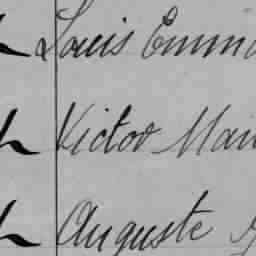 Louis Emma
Victor Mau
Auguste